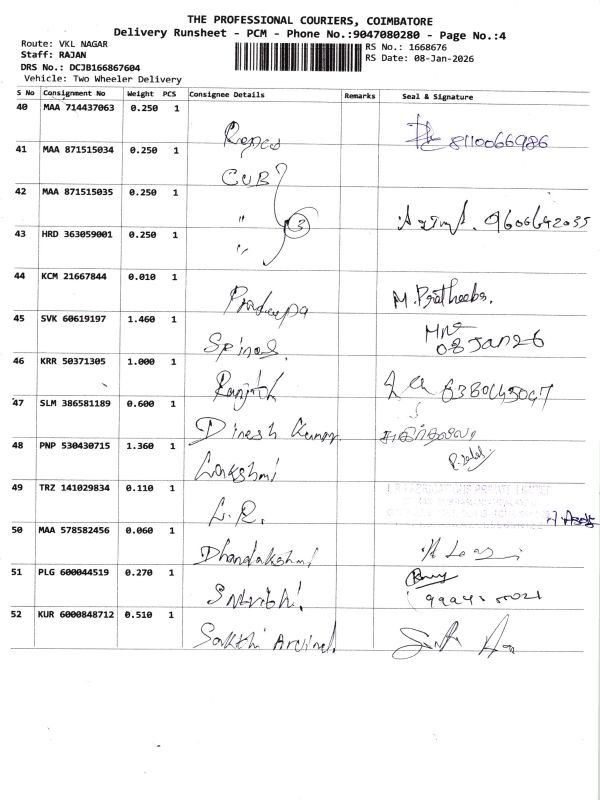 THE PROFESSIONAL COURIERS, COIMBATORE
Delivery Runsheet - PCM - Phone No.:9047080280 - Page No.:4
Route: VKL NAGAR
Staff: RAJAN
DRS No.: DCJB166867604
Vehicle: Two Wheeler Delivery
RS No.: 1668676
RS Date: 08-Jan-2026
S No Consignment No Weight PCS Consignee Details Remarks Seal & Signature
40 MAA 714437063 0.250 1 Repco 8110066986
41 MAA 871515034 0.250 1 CUB
42 MAA 871515035 0.250 1 " 3 9600642035
43 HRD 363059001 0.250 1 "
44 KCM 21667844 0.010 1 Pradeepa M. Pratheeba.
45 SVK 60619197 1.460 1 Spinos. 08 JAN 26
46 KRR 50371305 1.000 1 Ranjith
47 SLM 386581189 0.600 1 Dinesh Kumar
48 PNP 530430715 1.360 1 Lakshmi
49 TRZ 141029834 0.110 1 L.R.
50 MAA 578582456 0.060 1 Dhanalakshmi
51 PLG 600044519 0.270 1
52 KUR 6000848712 0.510 1 Sakthi Arvind